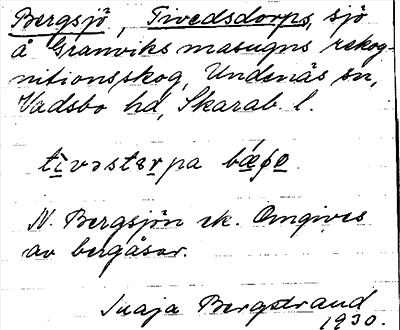 Bergsjö, Tivedsdorps, sjö
å Granviks masugns rekog-
nitionsskog, Undenäs sn,
Vadsbo hd, Skarab. l.
tìvəstərpa
N. Bergsjön ek. Omgives
av bergåsar.
Bergstrand
1930.